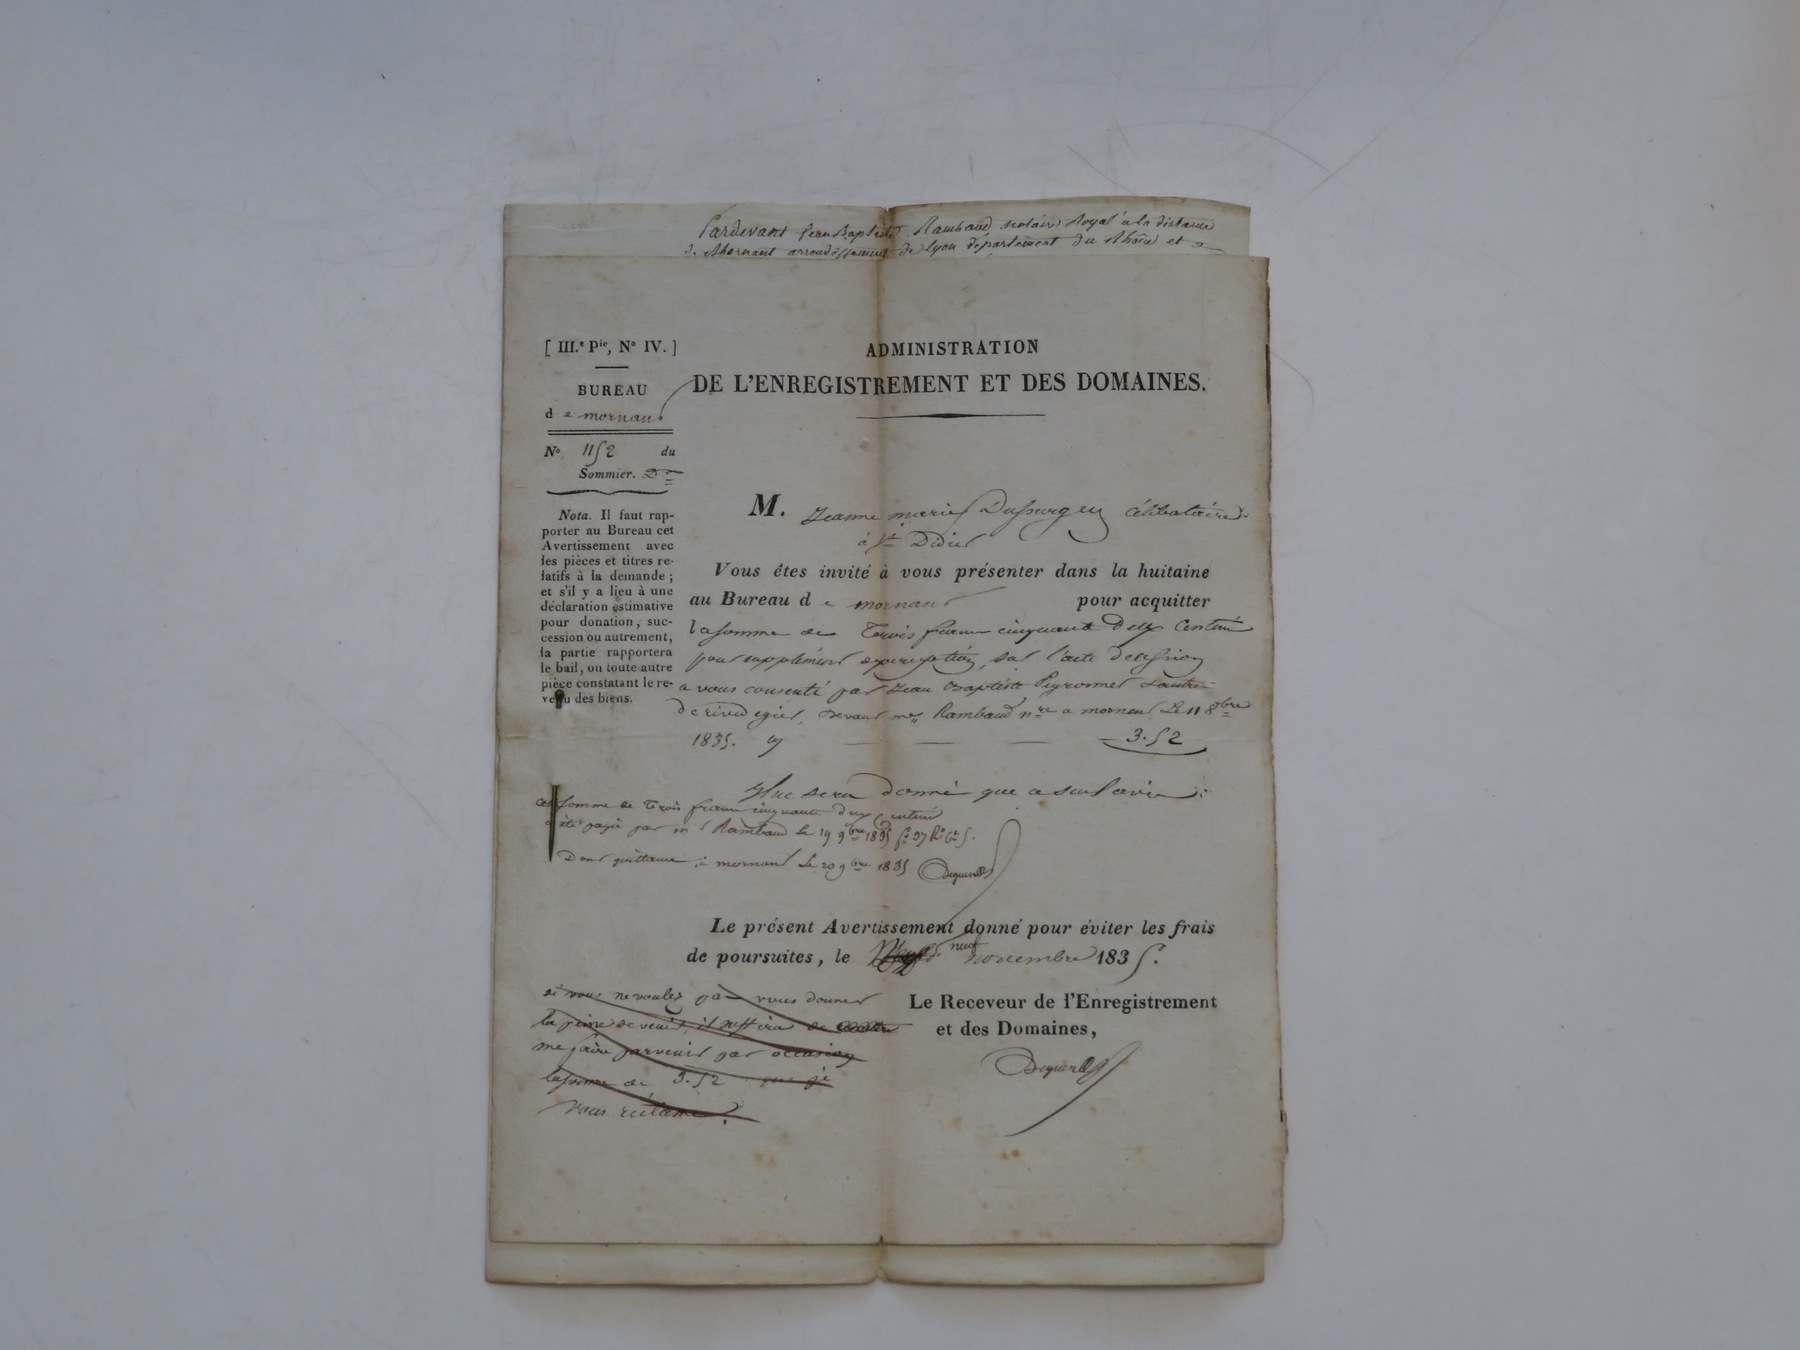 Pardevant Jean Baptiste Rambaud notaire Royal à la distance
de Mornant arrondissement de lyon département du Rhône et
[ III.e Pie, No IV. ]
BUREAU
de mornant
No 1152 du
Sommier. Don
Nota. Il faut rap-
porter au Bureau cet
Avertissement avec
les pièces et titres re-
latifs à la demande ;
et s'il y a lieu à une
déclaration estimative
pour donation, suc-
cession ou autrement,
la partie rapportera
le bail, ou toute autre
pièce constatant le re-
venu des biens.
ADMINISTRATION
DE L'ENREGISTREMENT ET DES DOMAINES.
M. Jeanne marie Dussurgey célibataire
à St Didier
Vous êtes invité à vous présenter dans la huitaine
au Bureau de mornant pour acquitter
la somme de Trois francs cinquante Deux Centimes
pour supplément perception sur l'acte
a vous consenti par Jean Baptiste Peyronnet
Devant me Rambaud nre a mornant Le 11 8bre
1835. cy 3.52
Il ne sera donné que ce seul avis.
Cette somme de Trois francs cinquante Deux Centimes
a été payée par m Rambaud le 19 9bre 1835 fo 37 Ro Ce 5.
Dont quittance à mornant Le 20 9bre 1835
Le présent Avertissement donné pour éviter les frais
de poursuites, le neuf novembre 1835.
si vous ne voulez pas vous donner
la peine de venir, il suffira de
me faire parvenir par occasion
la somme de 3.52 que je
vous réclame.
Le Receveur de l'Enregistrement
et des Domaines,